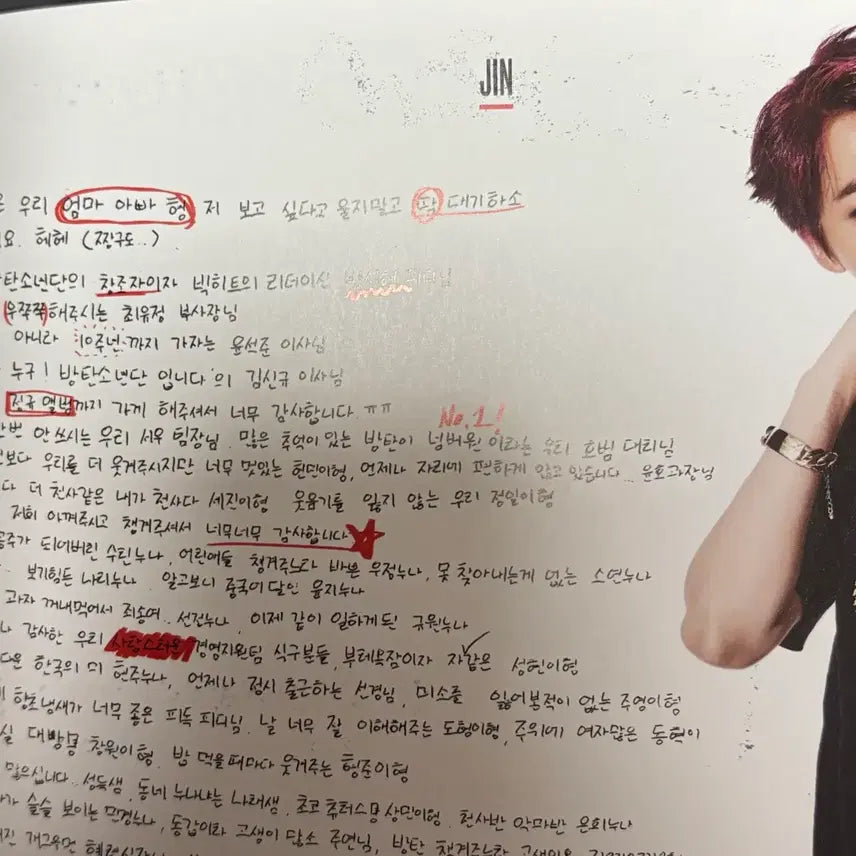 JIN
우리 엄마 아빠 형 저 보고 싶다고 울지말고 딱 대기하소
요. 헤헤 (짱구도..)
탄소년단의 창조자이자 빅히트의 리더이신
우쭈쭈해주시는 최유정 부사장님
아니라 10주년까지 가자는 윤석준 이사님
누구! 방탄소년단 입니다'의 김신규 이사님
정규 앨범까지 가게 해주셔서 너무 감사합니다 ㅠㅠ
No.1!
안쓰시는 우리 서우 팀장님. 많은 추억이 있는 방탄이 넘버원 이라는 우리 호범 대리님
보다 우리를 더 웃겨주시지만 너무 멋있는 현민이형, 언제나 자리에 편하게 앉고 있습니다... 윤호과장님
다 더 천사같은 내가 천사다 세진이형 웃음기를 잃지 않는 우리 정일이형
저희 아껴주시고 챙겨주셔서 너무너무 감사합니다
공주가 되어버린 수린누나, 어린애들 챙겨주느라 바쁜 우정누나, 못 찾아내는게 없는 소연누나
보기힘든 나리누나. 알고보니 중국어달인 윤지누나
과자 꺼내먹어서 죄송여.. 선전누나, 이제 같이 일하게된 규원누나
나 감사한 우리 사랑스러운 경영지원팀 식구분들, 부테목잠이자 자갑은 성현이형
다운 한국의 미 현주누나, 언제나 정시 출근하는 선경님, 미소를 잃어본적이 없는 주영이형
향초냄새가 너무 좋은 피독 피디님. 날 너무 잘 이해해주는 도형이형, 주위에 여자많은 동혁이
실 대방몽 창원이형. 밥 먹을때마다 웃겨주는 형준이형
맡으십니다.. 성득쌤, 동네 누나나는 나래쌤. 초코 츄러스몽 상민이형. 천사반 악마반 은희누나
가 슬슬 보이는 민경누나, 동갑이라 고생이 많소 주연님, 방탄 챙겨주느라 고생많은